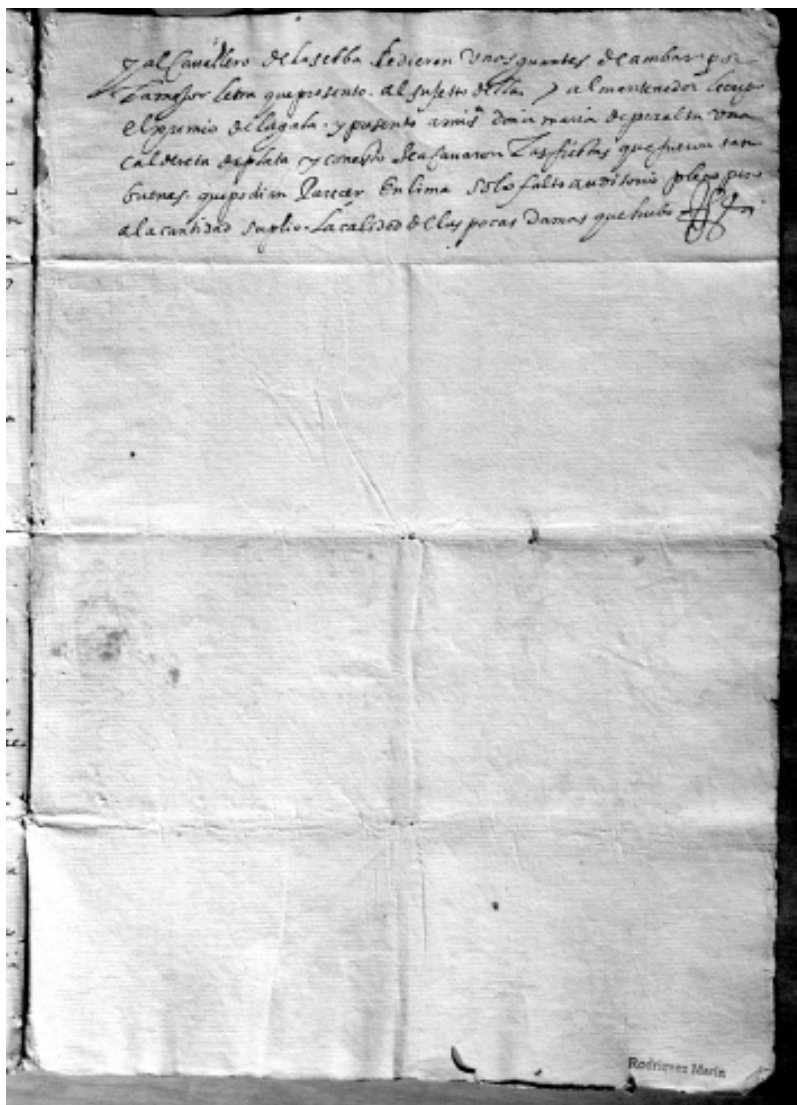 y al Cauallero de la selba le dieron Vnos guantes de ambar por
La mejor letra que presento. al sujeto dellas y al mantenedor le cupo
el premio de la gala. y presento a mis.ª doña maria de peralta Vna
caldereta de plata y con esto se acauaron Las fiestas que fueron tan
buenas. que podian Parecer En lima solo falto auditorio pleno pero
a la cantidad suplio. La calidad de las pocas damas que hubo
Rodríguez Marín